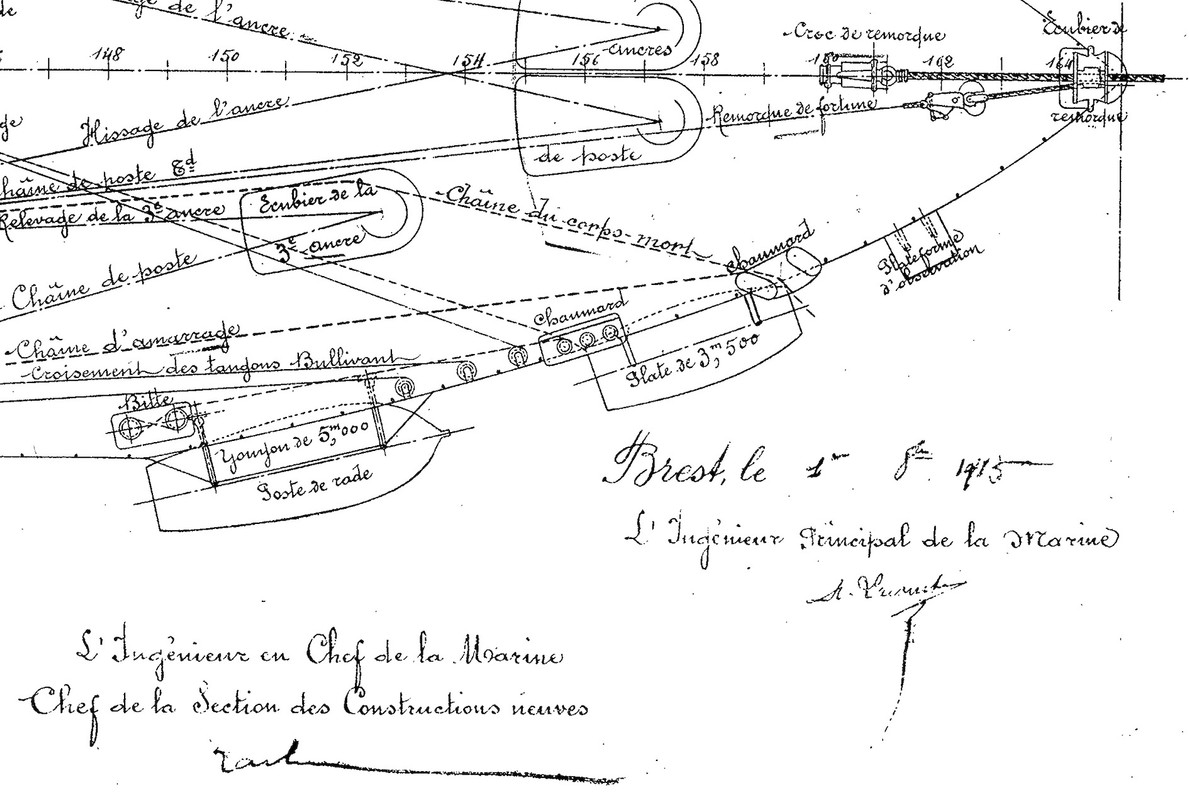 de
ge de l'ancre
Croc de remorque
Écubier de
ancres
148 150 152 154 156 158 160 162 164
Hissage de l'ancre
Remorque de fortune
remorque
ge
de poste
Chaîne de poste Td
Relevage de la 3e ancre
Écubier de la
3e ancre
Chaîne du corps-mort
Chaîne de poste
Chaumard
Plateforme
d'observation
Chaumard
Chaîne d'amarrage
Croisement des tangons Bullivant
Plate de 3,m500
Bitte
Youyou de 5,m000
Poste de rade
Brest, le 1er 1915
L'Ingénieur Principal de la Marine
L'Ingénieur en Chef de la Marine
Chef de la Section des Constructions neuves